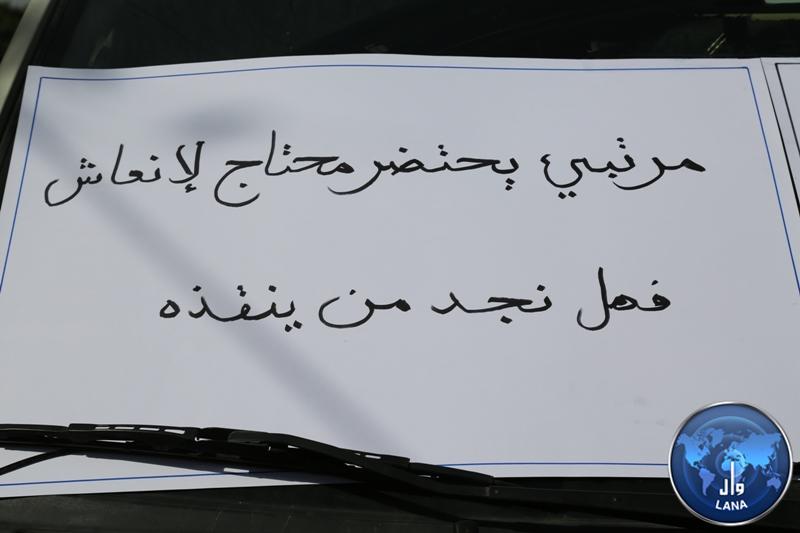 مرتبي يحتضر محتاج لإنعاش
فهل نجد من ينقذه
وال
LANA